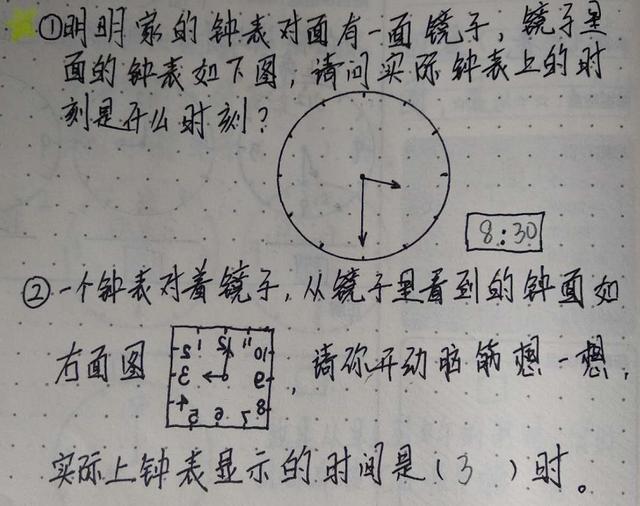 ①明明家的钟表对面有一面镜子，镜子里
面的钟表如下图，请问实际钟表上的时
刻是什么时刻？
8:30
②一个钟表对着镜子，从镜子里看到的钟面如
右面图
12 1 2 3 4 5 6 7 8 9 10 11
，请你开动脑筋想一想，
实际上钟表显示的时间是（3 ）时。